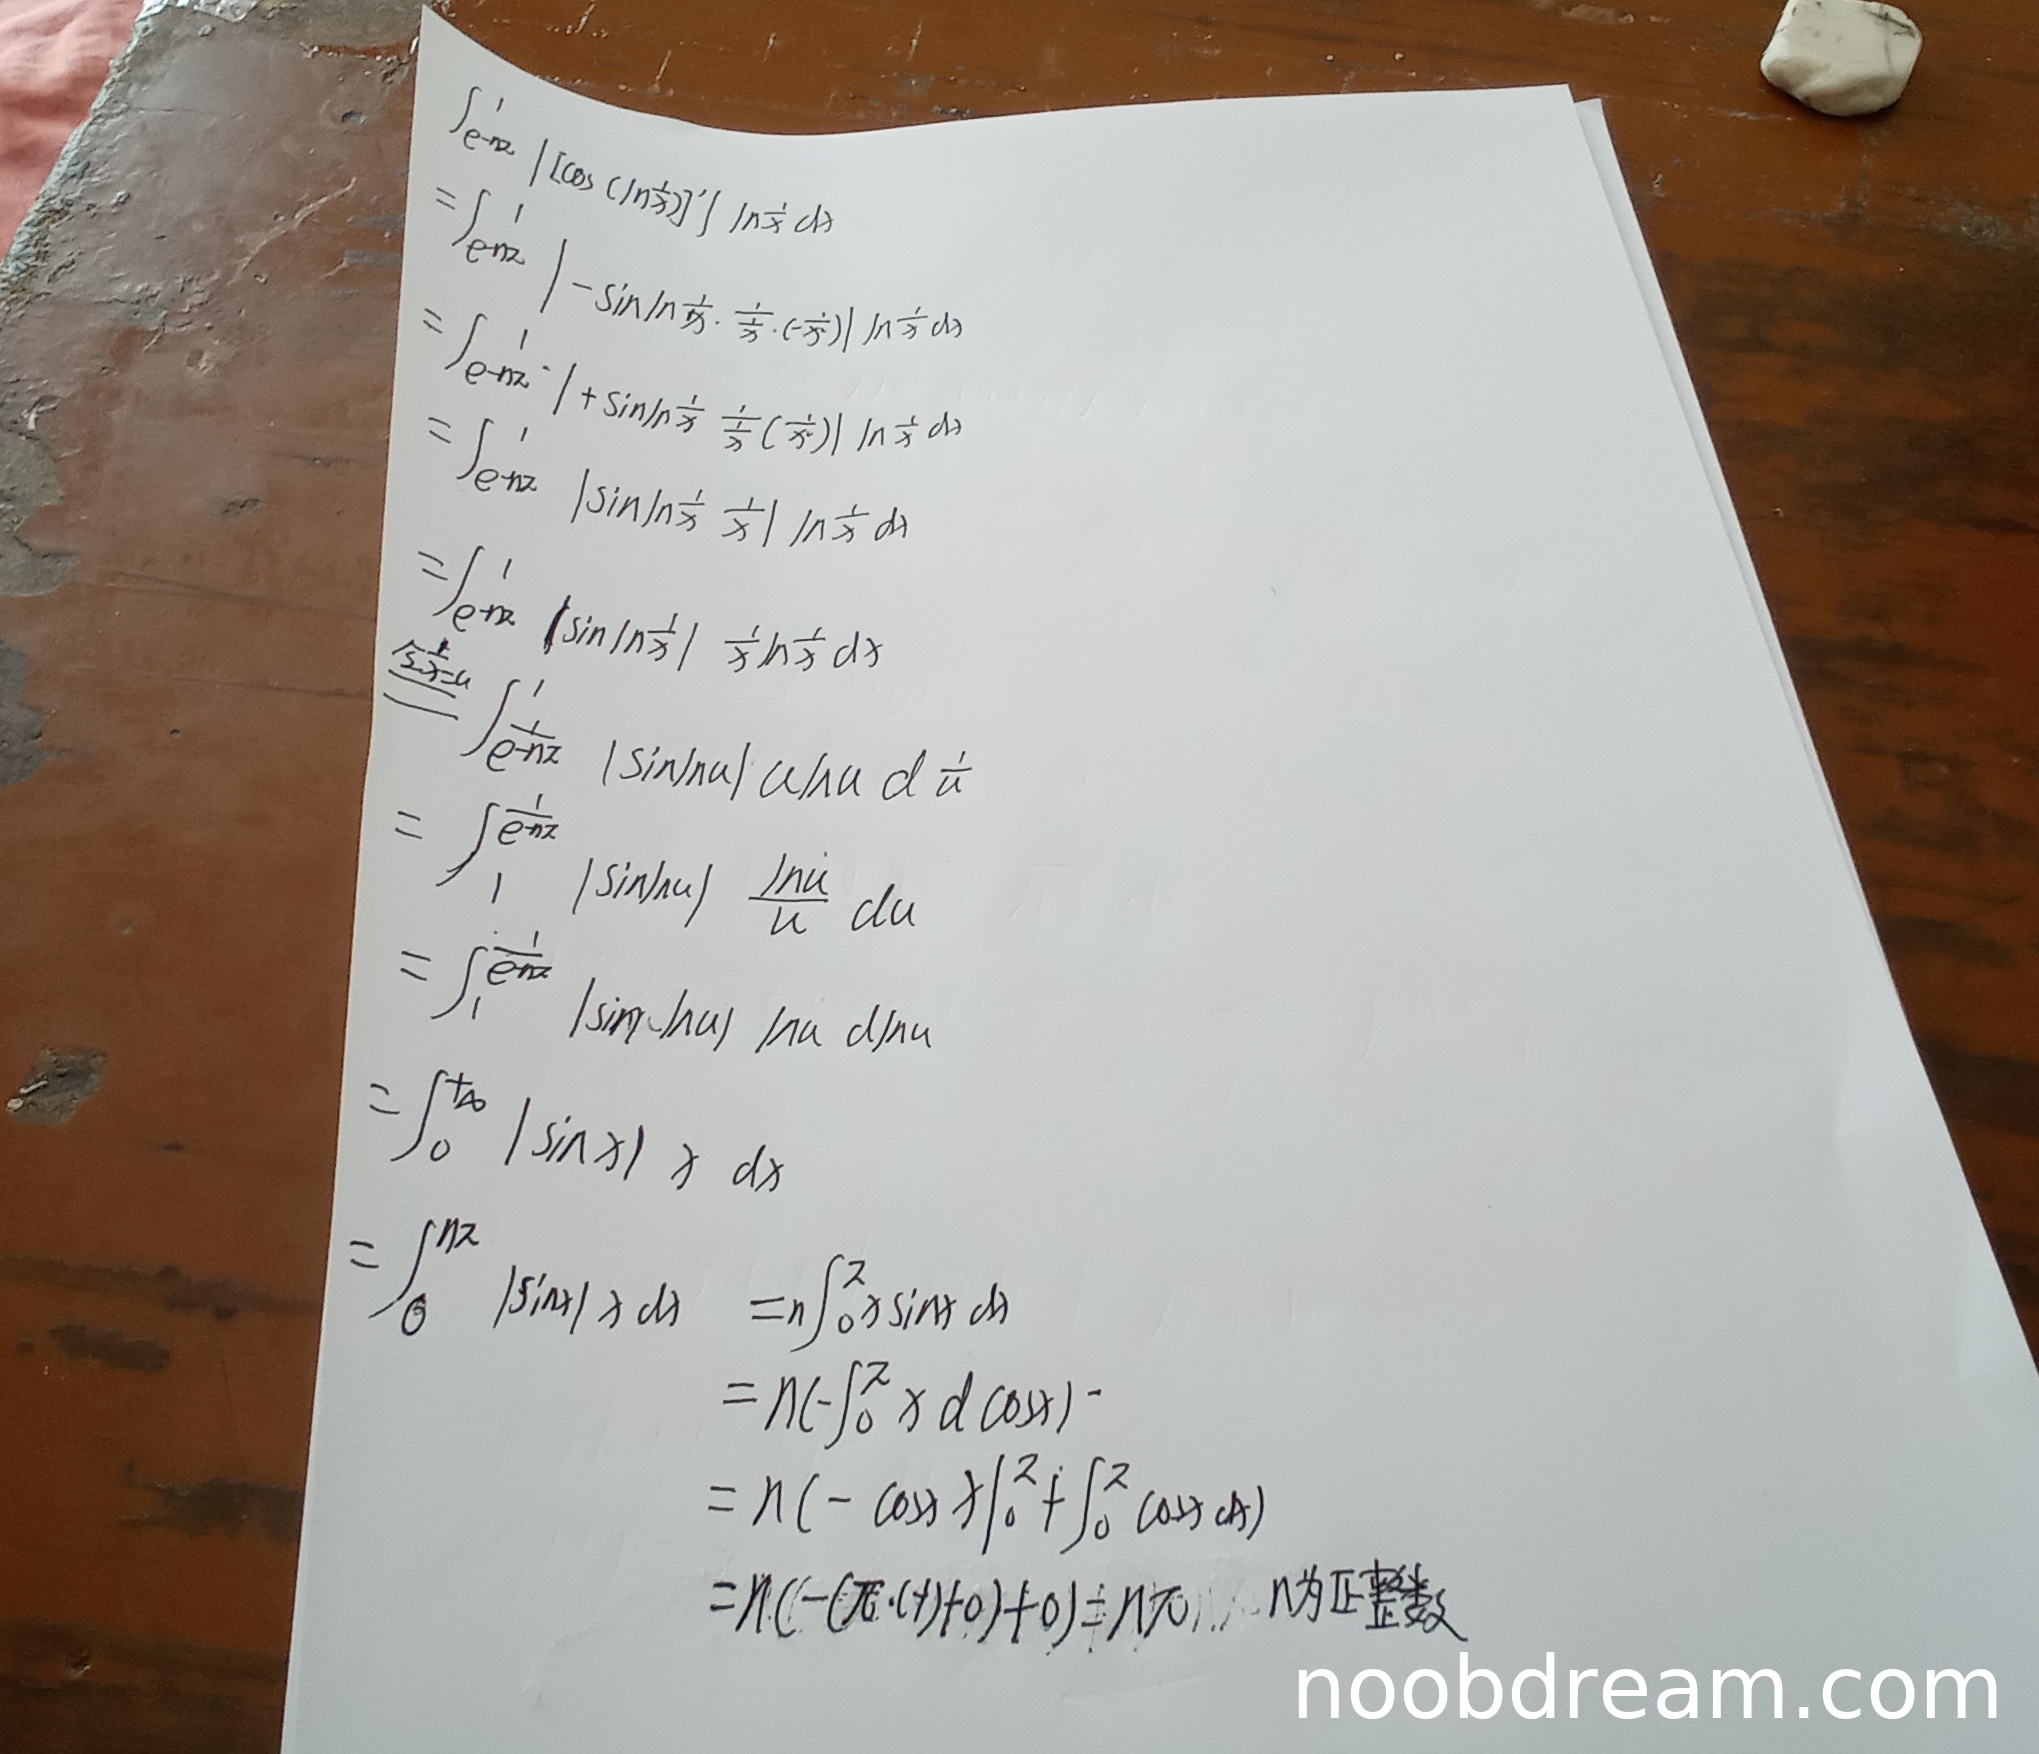 ∫_{e^{-nπ}}^{1} |[cos(ln 1/x)]'| ln 1/x dx
= ∫_{e^{-nπ}}^{1} |-sin ln 1/x · 1/(1/x) · (-1/x²)| ln 1/x dx
= ∫_{e^{-nπ}}^{1} |+sin ln 1/x 1/(1/x) (1/x²)| ln 1/x dx
= ∫_{e^{-nπ}}^{1} |sin ln 1/x 1/x| ln 1/x dx
= ∫_{e^{-nπ}}^{1} |sin ln 1/x| 1/x ln 1/x dx
令 1/x = u
= ∫_{1/e^{-nπ}}^{1} |sin ln u| u ln u d 1/u
= ∫_{1}^{1/e^{-nπ}} |sin ln u| (ln u)/u du
= ∫_{1}^{1/e^{-nπ}} |sin ln u| ln u d ln u
= ∫_{0}^{+∞} |sin x| x dx
= ∫_{0}^{nπ} |sin x| x dx = n∫_{0}^{π} x sin x dx
= n(-∫_{0}^{π} x d cos x)
= n(-cos x x|_{0}^{π} + ∫_{0}^{π} cos x dx)
= n(-(π·(-1)+0)+0) = nπ n为正整数
noobdream.com